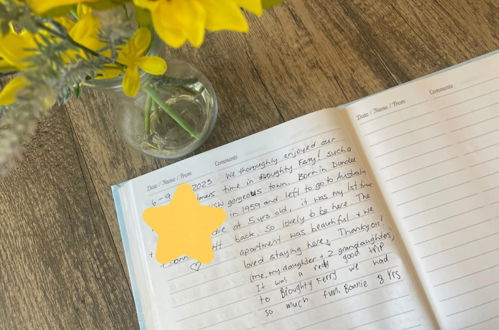 Date / Name / From Comments
Date / Name / From Comments
2023 We thoroughly enjoyed our
time in Broughty Ferry! Such a
gorgeous town. Born in Dundee
in 1959 and left to go to Australia
at 5 yrs old, it was my 1st time
back. So lovely to be here. The
apartment was beautiful & we
loved staying here. Thankyou!
(me, my daughter & 2 grandaughters)
It was a rely good trip
to Broughty Ferry we had
so much fun. Bonnie 8 yrs